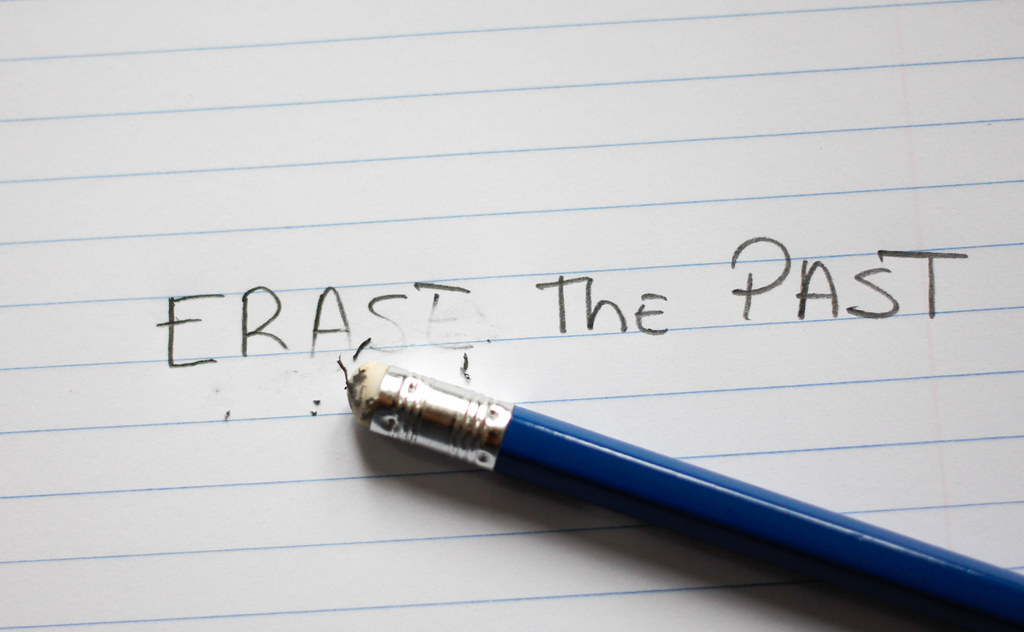 ERASE The PAST